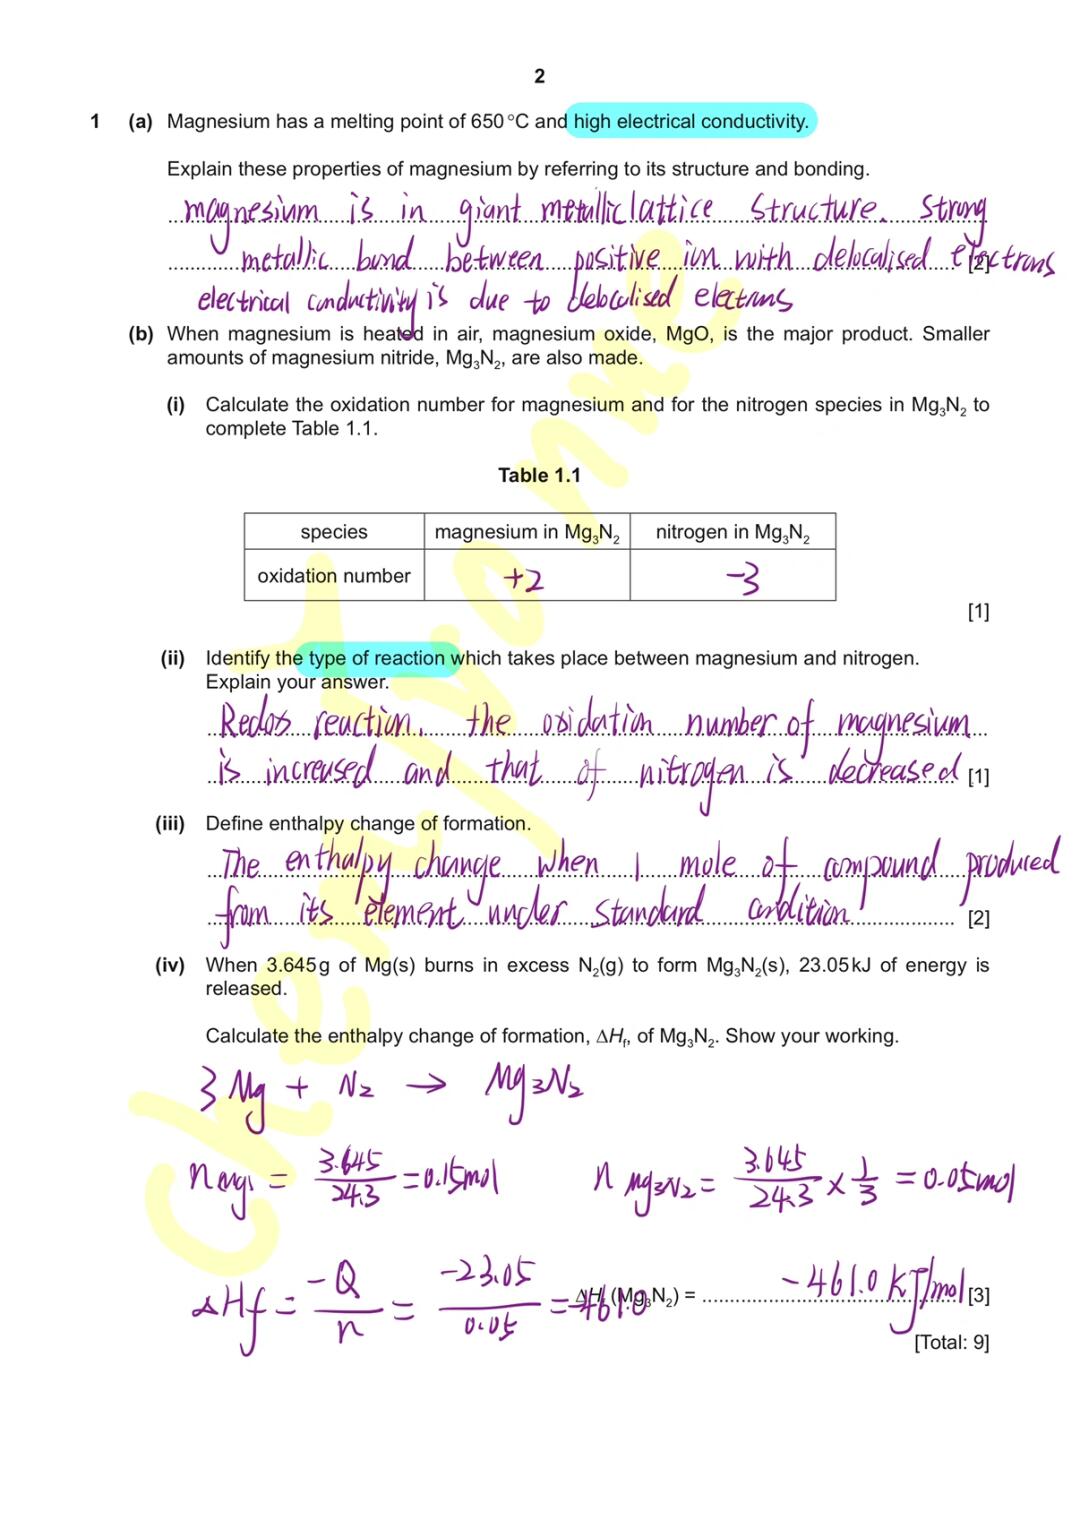 2
1 (a) Magnesium has a melting point of 650 °C and high electrical conductivity.
Explain these properties of magnesium by referring to its structure and bonding.
magnesium is in giant metallic lattice structure. Strong
metallic bond between positive ion with delocalised electrons
[2]
electrical conductivity is due to delocalised electrons
(b) When magnesium is heated in air, magnesium oxide, MgO, is the major product. Smaller
amounts of magnesium nitride, Mg₃N₂, are also made.
(i) Calculate the oxidation number for magnesium and for the nitrogen species in Mg₃N₂ to
complete Table 1.1.
Table 1.1
species magnesium in Mg₃N₂ nitrogen in Mg₃N₂
oxidation number +2 -3
[1]
(ii) Identify the type of reaction which takes place between magnesium and nitrogen.
Explain your answer.
Redox reaction. the oxidation number of magnesium
is increased and that of nitrogen is decreased [1]
(iii) Define enthalpy change of formation.
The enthalpy change when 1 mole of compound produced
from its element under standard condition [2]
(iv) When 3.645 g of Mg(s) burns in excess N₂(g) to form Mg₃N₂(s), 23.05 kJ of energy is
released.
Calculate the enthalpy change of formation, ΔHf, of Mg₃N₂. Show your working.
3 Mg + N₂ → Mg₃N₂
n Mg = 3.645/24.3 = 0.15mol n Mg₃N₂ = 3.645/24.3 × 1/3 = 0.05mol
ΔHf = -Q/n = -23.05/0.05 = -461.0
ΔHf (Mg₃N₂) = -461.0 KJ/mol [3]
[Total: 9]
Chenyonne